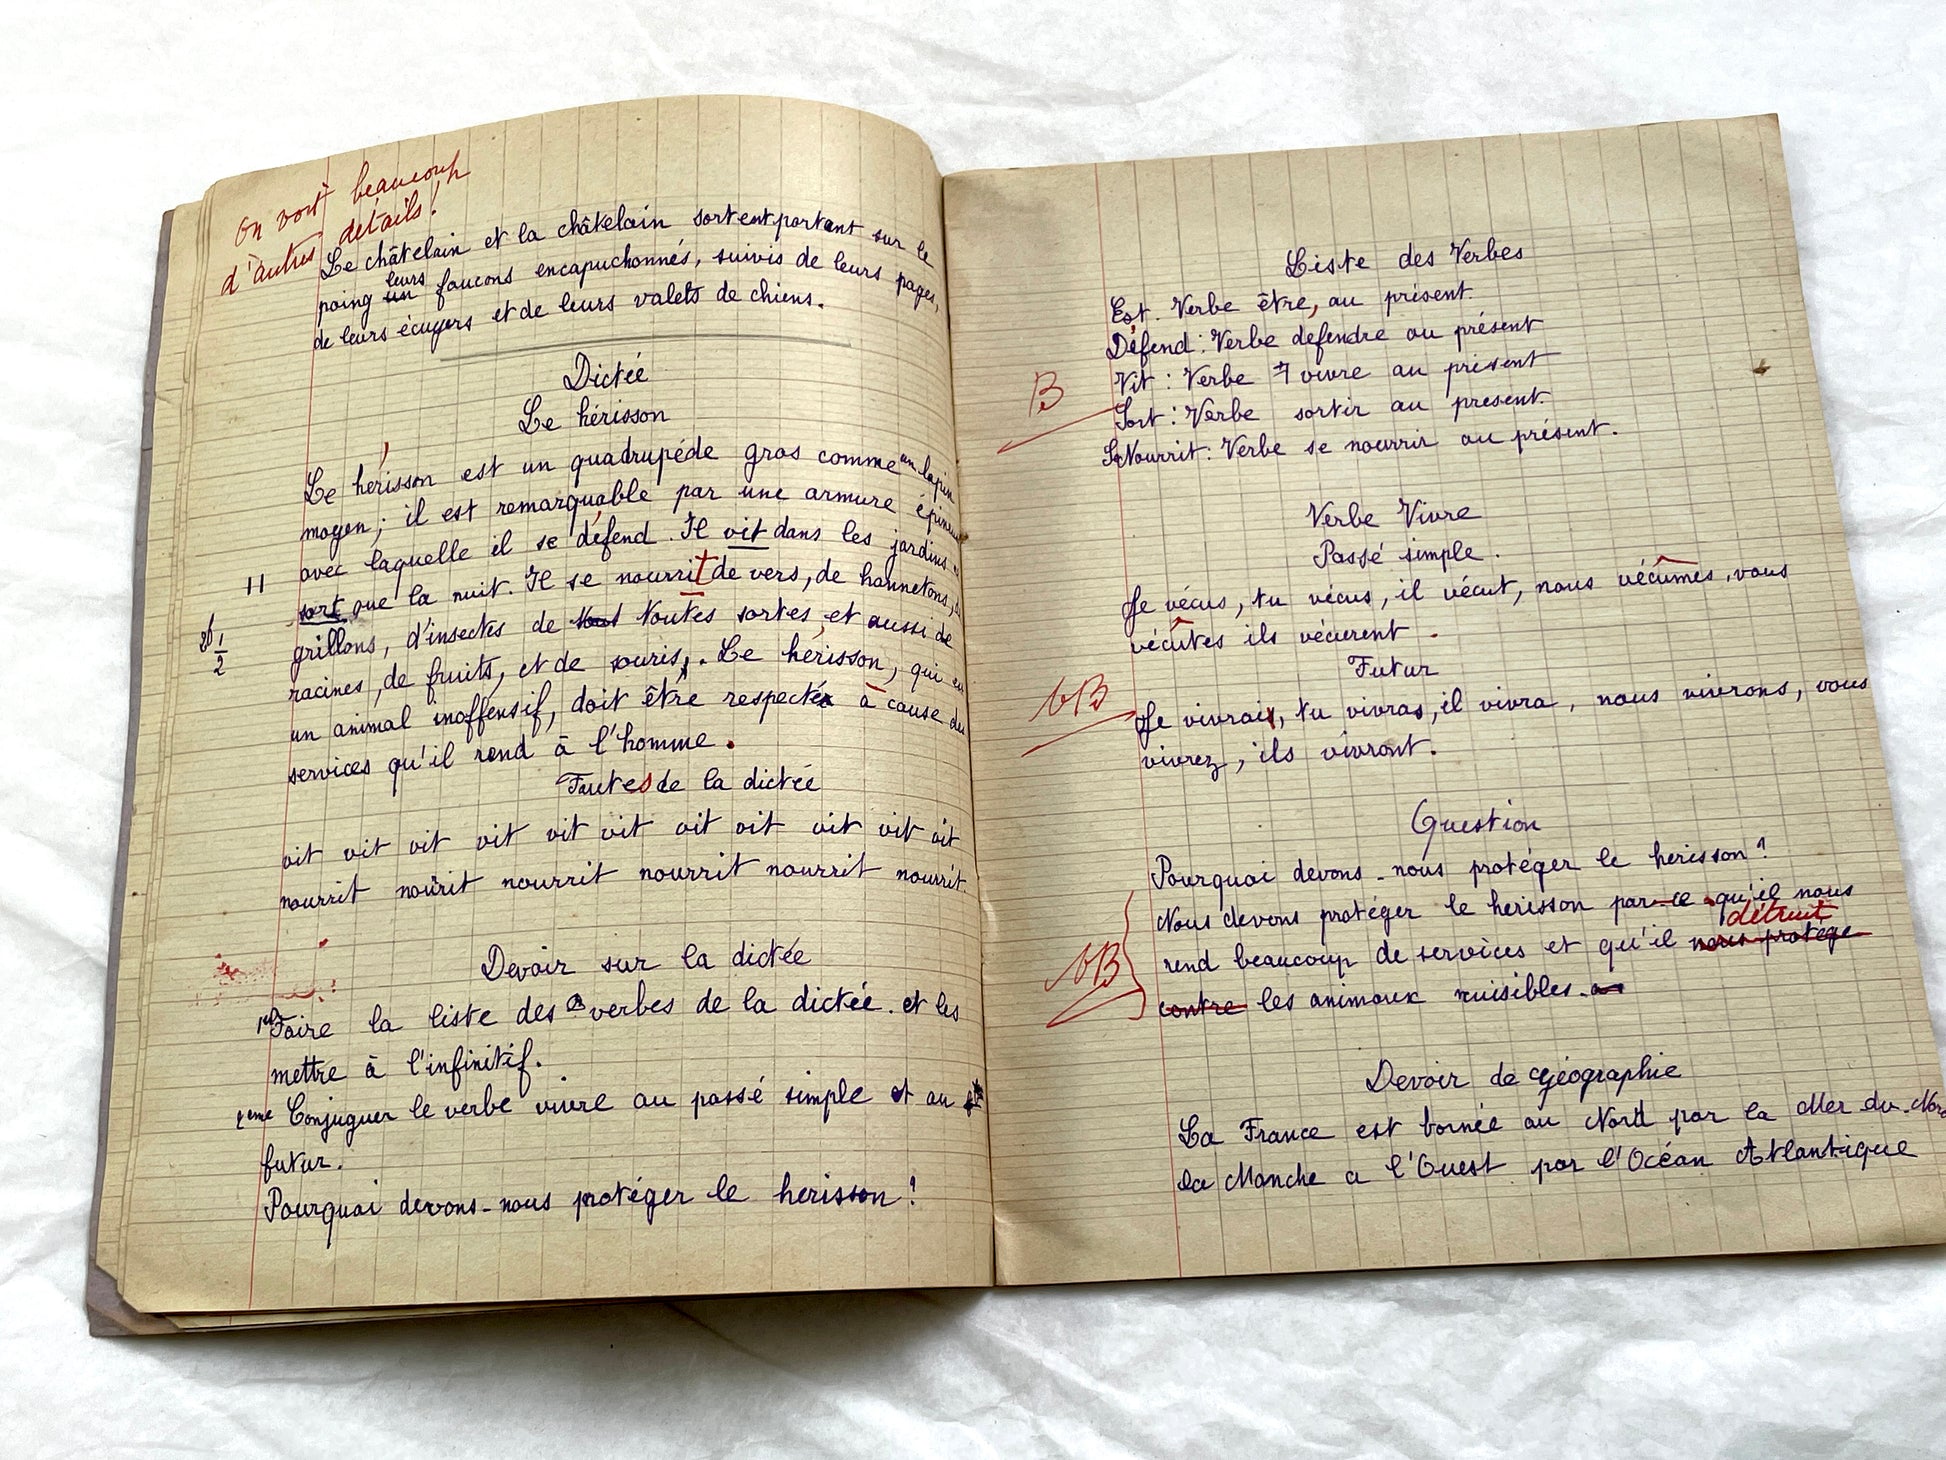 On voit beaucoup
d'autres détails !
Le châtelain et la châtelain sortent portant sur le
poing un leurs faucons encapuchonnés, suivis de leurs pages,
de leurs écuyers et de leurs valets de chiens.
Dictée
Le hérisson
Le hérisson est un quadrupéde gros comme un lapin
moyen ; il est remarquable par une armure
avec laquelle il se défend. Il vit dans les jardins
11
sort que la nuit. Il se nourrit de vers, de hannetons,
1/2
grillons, d'insectes de tout toutes sortes, et aussi de
racines, de fruits, et de souris. Le hérisson, qui
un animal inoffensif, doit être respecté à cause du
services qu'il rend à l'homme.
Fautes de la dictée
vit vit vit vit vit vit vit vit vit vit vit
nourrit nourit nourrit nourrit nourrit nourrit.
Devoir sur la dictée
Faire la liste des verbes de la dictée. et les
mettre à l'infinitif.
2eme Conjuguer le verbe vivre au passé simple et au
futur.
Pourquoi devons-nous protéger le herisson ?
Liste des Verbes
Est. Verbe être, au présent.
Défend : Verbe défendre au présent
B
Vit : Verbe vivre au présent
Sort : Verbe sortir au present.
Se Nourrit : Verbe se nourrir au présent.
Verbe Vivre
Passé simple.
Je vécus, tu vécus, il vécut, nous vécûmes, vous
vécûtes ils vécurent.
Futur
tB
Je vivrais, tu vivras, il vivra, nous vivrons, vous
vivrez, ils vivront.
Question
Pourquoi devons-nous protéger le herisson ?
Nous devons protéger le herisson par-ce qu'il nous
détruit
tB
rend beaucoup de services et qu'il nous protège
contre les animaux nuisibles.
Devoir de géographie
La France est bornée au Nord par la Mer du Nord
la Manche a l'Ouest par l'Océan Atlantique